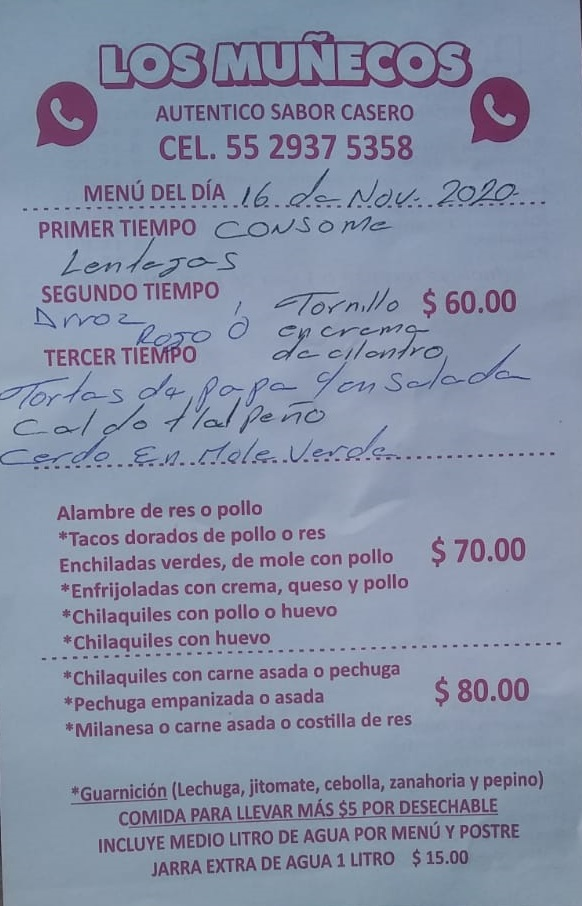 LOS MUÑECOS
AUTENTICO SABOR CASERO
CEL. 55 2937 5358
MENÚ DEL DÍA 16 de Nov. 2020
PRIMER TIEMPO CONSOME
Lentejas
SEGUNDO TIEMPO
Arroz Rojo Ó Tornillo en crema de cilantro $ 60.00
TERCER TIEMPO
Tortas de papa con Salada
Caldo tlalpeño
Cerdo En Mole Verde
Alambre de res o pollo
*Tacos dorados de pollo o res
Enchiladas verdes, de mole con pollo $ 70.00
*Enfrijoladas con crema, queso y pollo
*Chilaquiles con pollo o huevo
*Chilaquiles con huevo
*Chilaquiles con carne asada o pechuga
*Pechuga empanizada o asada $ 80.00
*Milanesa o carne asada o costilla de res
*Guarnición (Lechuga, jitomate, cebolla, zanahoria y pepino)
COMIDA PARA LLEVAR MÁS $5 POR DESECHABLE
INCLUYE MEDIO LITRO DE AGUA POR MENÚ Y POSTRE
JARRA EXTRA DE AGUA 1 LITRO $ 15.00